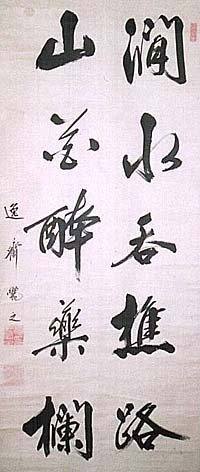 澗水吞樵路
山花醉藥欄
逸齋觉之